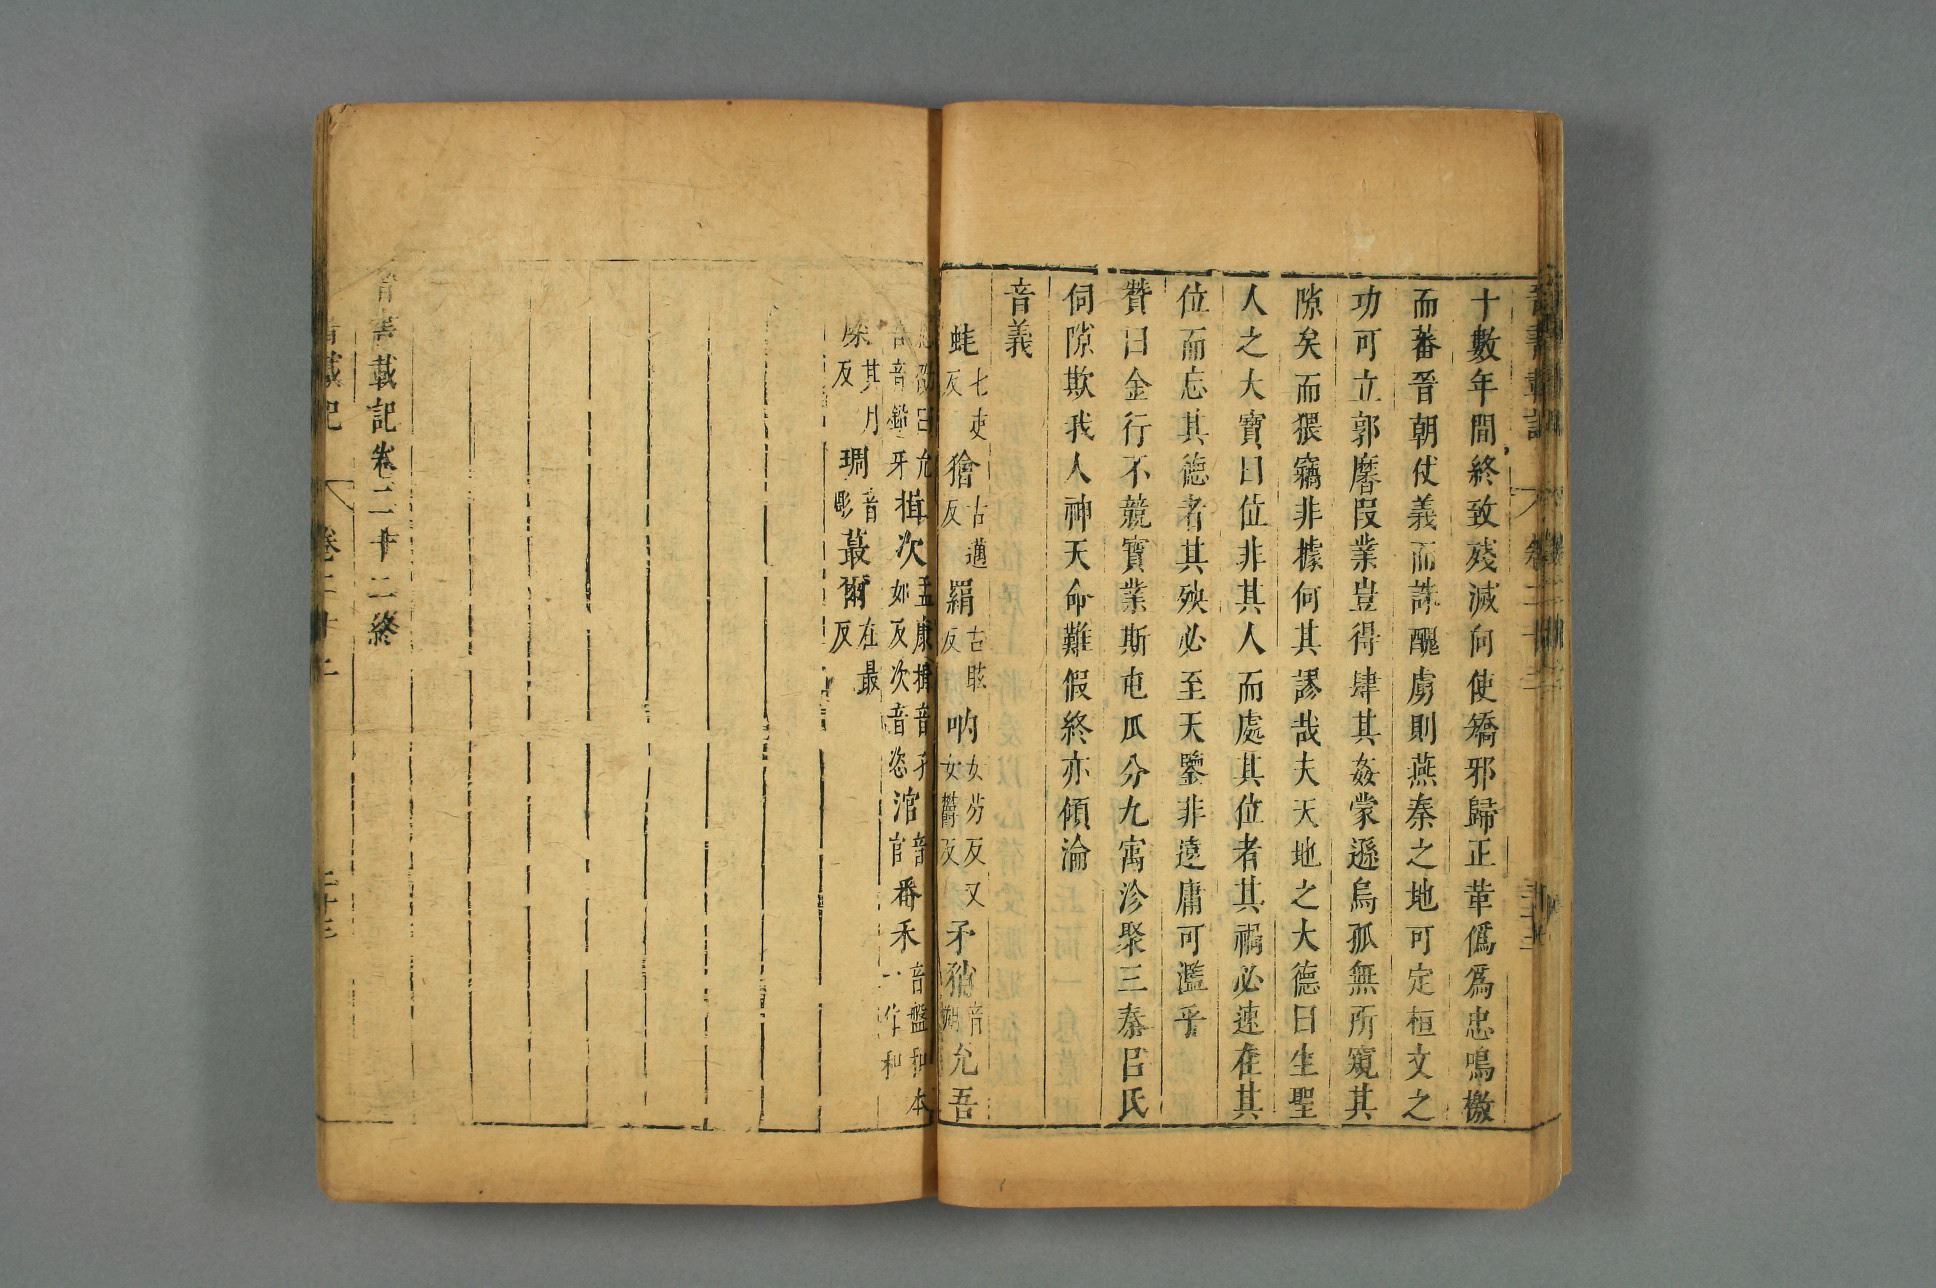 十數年間終致殘滅向使矯邪歸正革僞爲忠鳴檄
而蕃晉朝仗義而誅醜虜則燕秦之地可定桓文之
功可立郭黁叚業豈得肆其姦蒙遜烏孤無所窺其
隙矣而猥竊非據何其謬哉夫天地之大德曰生聖
人之大寶曰位非其人而處其位者其禍必速在其
位而忘其德者其殃必至天鑒非遠庸可濫乎
贊曰金行不競寶業斯屯瓜分九寓沴聚三秦呂氏
伺隙欺我人神天命難假終亦傾淪
音義
蛙七吏反獪古邁反羂古眩反吶女芬反又女鬱反矛矟音朔允吾
音鈆牙揟次孟康揟音子如反次音恣涫音官番禾音盤和本一作和
㭕其月反琱音彫蕞爾在最反
晉書載記卷二十二終
載記
卷二十二
二十三